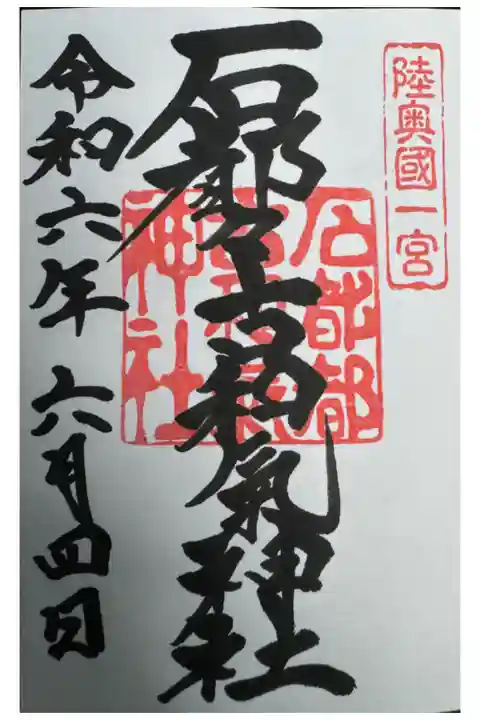 陸奥國一宮
石都々古和氣神社
石都都
古和氣
神社
令和六年 六月四日